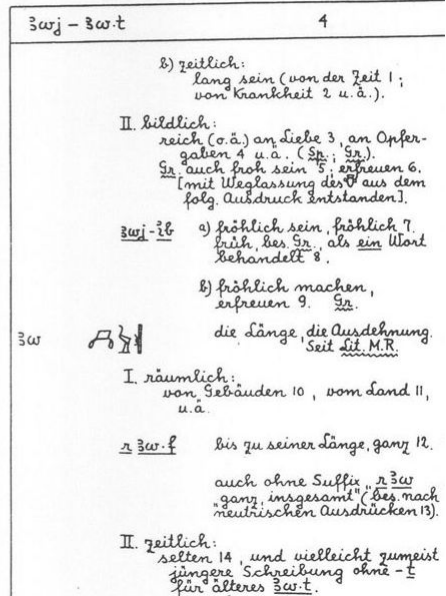 ꜣwj – ꜣw·t 4
b) zeitlich:
lang sein (von der Zeit 1;
von Krankheit 2 u.ä.).
II. bildlich:
reich (o.ä.) an Liebe 3, an Opfer-
gaben 4 u.ä. (Sp.; Gr.).
Gr. auch froh sein 5; erfreuen 6.
[mit Weglassung des 𓄣 aus dem
folg. Ausdruck entstanden].
ꜣwj-ib a) fröhlich sein, fröhlich 7.
früh, bes. Gr., als ein Wort
behandelt 8.
b) fröhlich machen,
erfreuen 9. Gr.
ꜣw die Länge, die Ausdehnung.
Seit Lit. M.R.
I. räumlich:
von Gebäuden 10, vom Land 11,
u.ä.
r ꜣw·f bis zu seiner Länge, ganz 12.
auch ohne Suffix „r ꜣw
ganz, insgesamt“ (bes. nach
neutrischen Ausdrücken 13).
II. zeitlich:
selten 14, und vielleicht zumeist
jüngere Schreibung ohne -t
für älteres ꜣw·t.